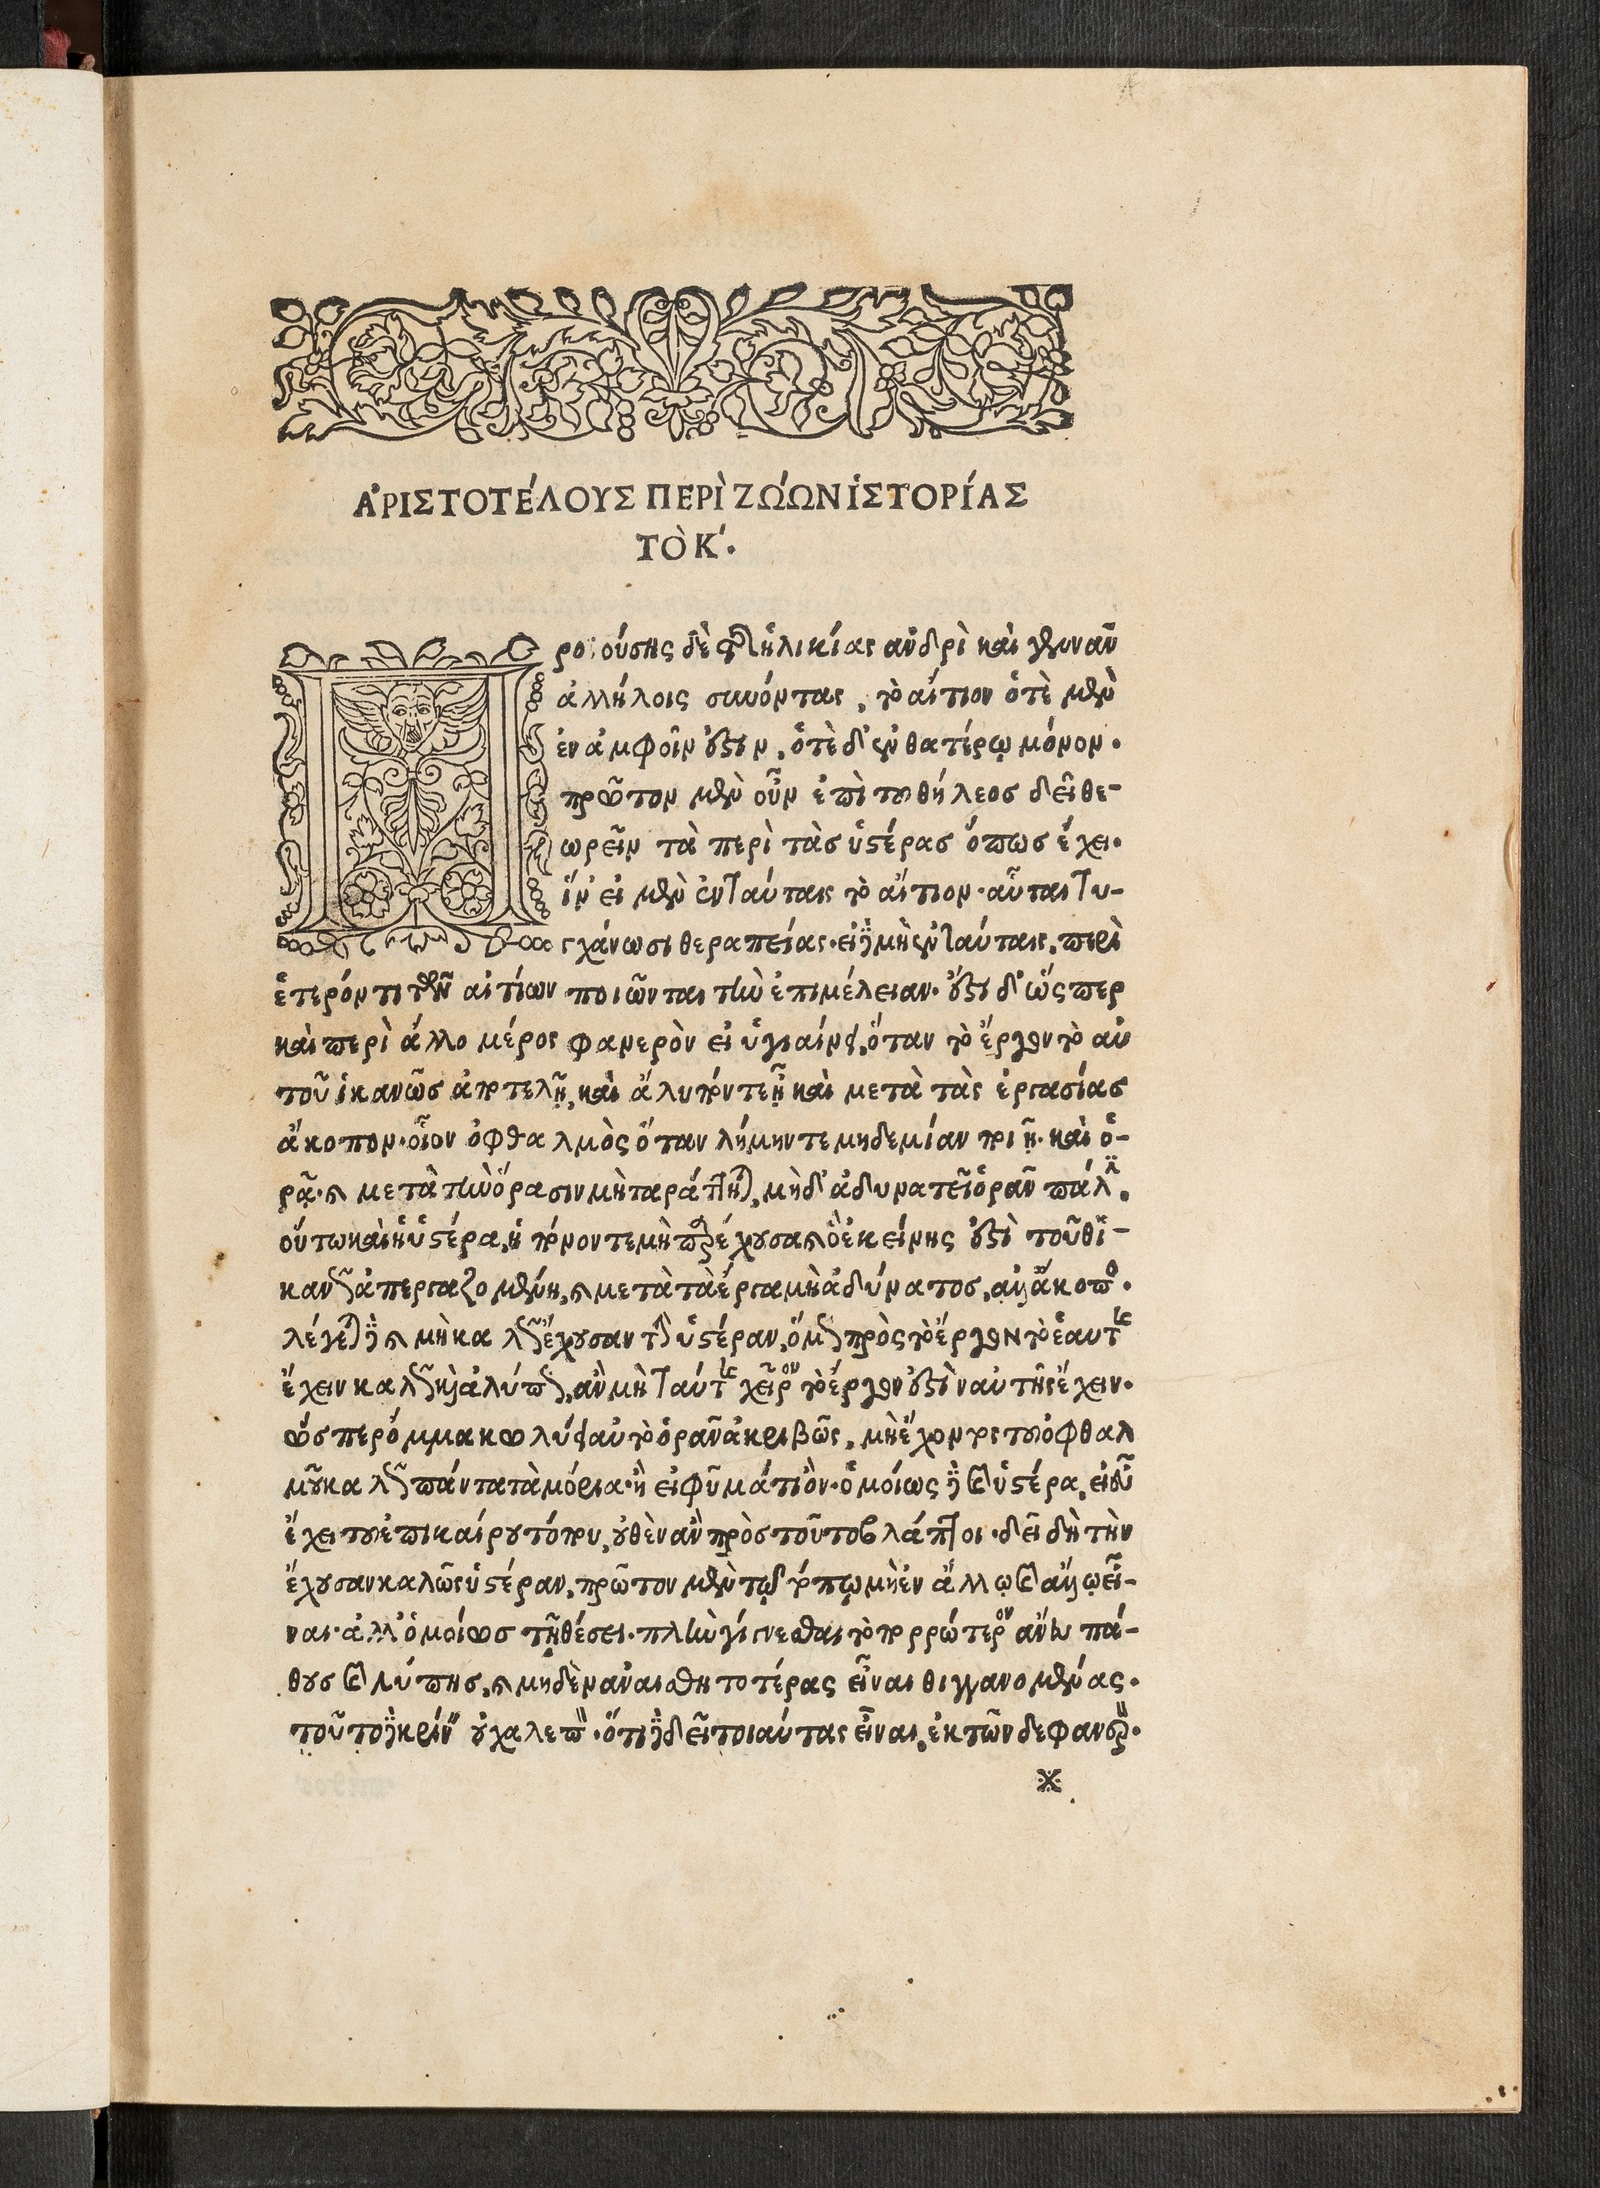 ἈΡΙΣΤΟΤΈΛΟΥΣ ΠΕΡῚ ΖΏΩΝ ἹΣΤΟΡΊΑΣ
ΤῸ Κ΄.
Προϊούσης δὲ τῆς ἡλικίας ἀνδρὶ καὶ γυναικὶ
ἀλλήλοις συνόντας, τὸ αἴτιον ὁτὲ μὲν
ἐν ἀμφοῖν ἐστιν, ὁτὲ δ' ἐν θατέρῳ μόνον·
πρῶτον μὲν οὖν ἐπὶ τοῦ θήλεος δεῖ θε-
ωρεῖν τὰ περὶ τὰς ὑστέρας ὅπως ἔχει·
ἵν' εἰ μὲν ἐν ταύταις τὸ αἴτιον· αὗται τυ-
γχάνωσι θεραπείας· εἰ δὲ μὴ ἐν ταύταις, περὶ
ἕτερόν τι τῶν αἰτίων ποιῶνται τὴν ἐπιμέλειαν· ἔστι δ' ὥσπερ
καὶ περὶ ἄλλο μέρος φανερὸν εἰ ὑγιαίνει, ὅταν τὸ ἔργον τὸ αὑ
τοῦ ἱκανῶς ἀποτελῇ, καὶ ἄλυπόν τε ᾖ καὶ μετὰ τὰς ἐργασίας
ἄκοπον· οἷον ὀφθαλμὸς ὅταν λήμην τε μηδεμίαν ποιῇ· καὶ ὁ-
ρᾷ· καὶ μετὰ τὴν ὅρασιν μὴ ταράττηται, μηδ' ἀδυνατεῖ ὁρᾶν πάλιν.
οὕτω καὶ ἡ ὑστέρα, ἡ πόνον τε μὴ παρέχουσα καὶ ὃ ἐκείνης ἐστὶ τοῦθ' ἱ-
κανῶς ἀπεργαζομένη, καὶ μετὰ τὰ ἔργα μὴ ἀδύνατος, ἀλλ' ἄκοπος.
λέγεται δὲ καὶ μὴ καλῶς ἔχουσαν τὴν ὑστέραν, ὅμως πρὸς τὸ ἔργον τὸ ἑαυτῆς
ἔχειν καλῶς καὶ ἀλύπως, ἂν μὴ ταύτῃ χεῖρον τὸ ἔργον ἐστὶν αὐτῆς ἔχειν·
ὥσπερ ὄμμα κωλύει αὐτὸ ὁρᾶν ἀκριβῶς, μὴ ἔχοντος τοῦ ὀφθαλ
μοῦ καλῶς πάντα τὰ μόρια· ἢ εἰ φῦμά τι ὄν· ὁμοίως δὲ καὶ ὑστέρα, εἰ εὖ
ἔχει τοῦ ἐπικαίρου τόπου, οὐθὲν ἂν πρὸς τοῦτο βλάπτοι· δεῖ δὴ τὴν
ἔχουσαν καλῶς ὑστέραν, πρῶτον μὲν τῷ τόπῳ μὴ ἐν ἄλλῳ καὶ ἄλλῳ εἶ-
ναι· ἀλλ' ὁμοίως τῇ θέσει· πλὴν γίγνεσθαι τὸ πορρώτερον ἄνευ πά-
θους καὶ λύπης, καὶ μηδὲν ἀναισθητοτέρας εἶναι θιγγανομένας.
τοῦτο δὲ κρίνειν οὐ χαλεπόν· ὅτι δὲ δεῖ τοιαύτας εἶναι, ἐκ τῶνδε φανερόν.